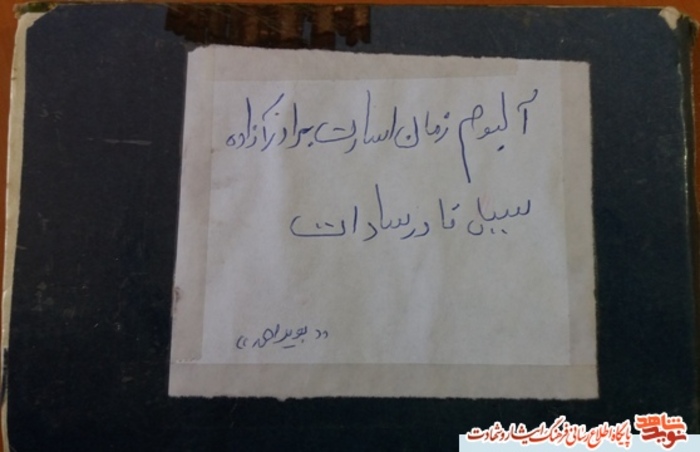 آلبوم زمان اسارت برادر آزاده
سیبل قادر سادات
«بویراحمد»
نوید شاهد
پایگاه اطلاع رسانی فرهنگ ایثار و شهادت